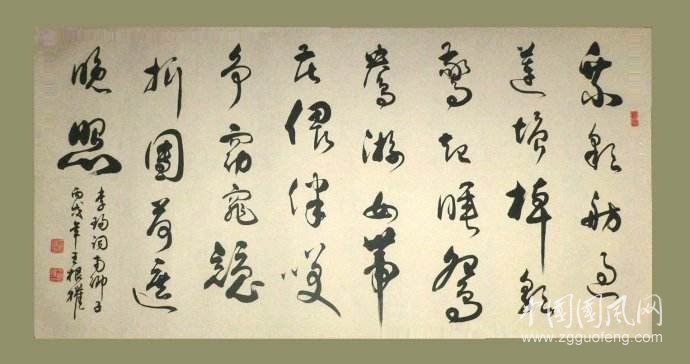 乘彩舫過
蓮塘棹歌
驚起睡鴛
鴦游女帶
花偎伴咲
争窈窕競
折團荷遮
晚照
李珣詞南鄉子
丙戌年王根權
中国国风网
www.zgguofeng.com